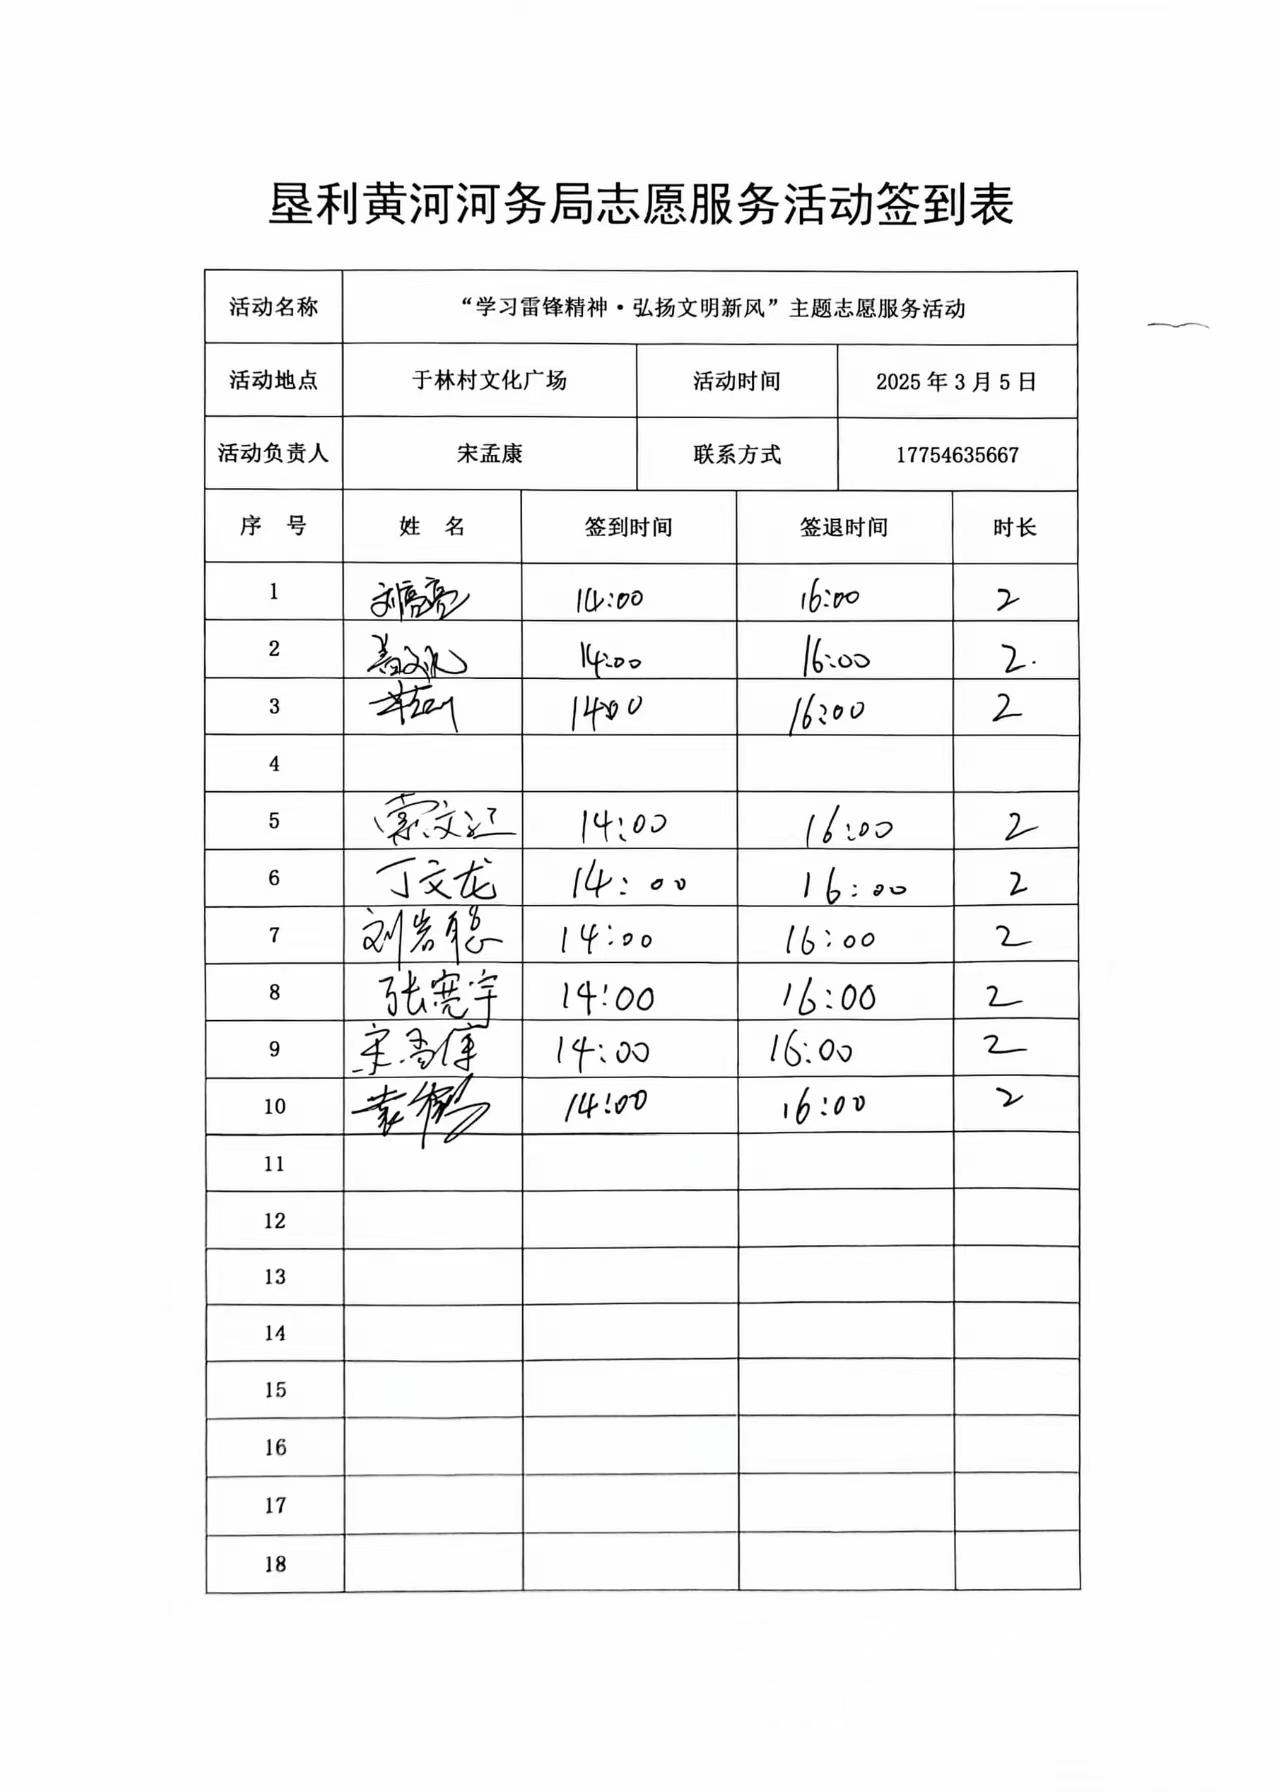 垦利黄河河务局志愿服务活动签到表
活动名称 “学习雷锋精神·弘扬文明新风”主题志愿服务活动
活动地点 于林村文化广场 活动时间 2025 年 3 月 5 日
活动负责人 宋孟康 联系方式 17754635667
序 号 姓 名 签到时间 签退时间 时长
1 14:00 16:00 2
2 14:00 16:00 2.
3 14:00 16:00 2
4
5 14:00 16:00 2
6 丁文龙 14:00 16:00 2
7 刘岩聪 14:00 16:00 2
8 张宪宇 14:00 16:00 2
9 宋孟康 14:00 16:00 2
10 14:00 16:00 2
11
12
13
14
15
16
17
18